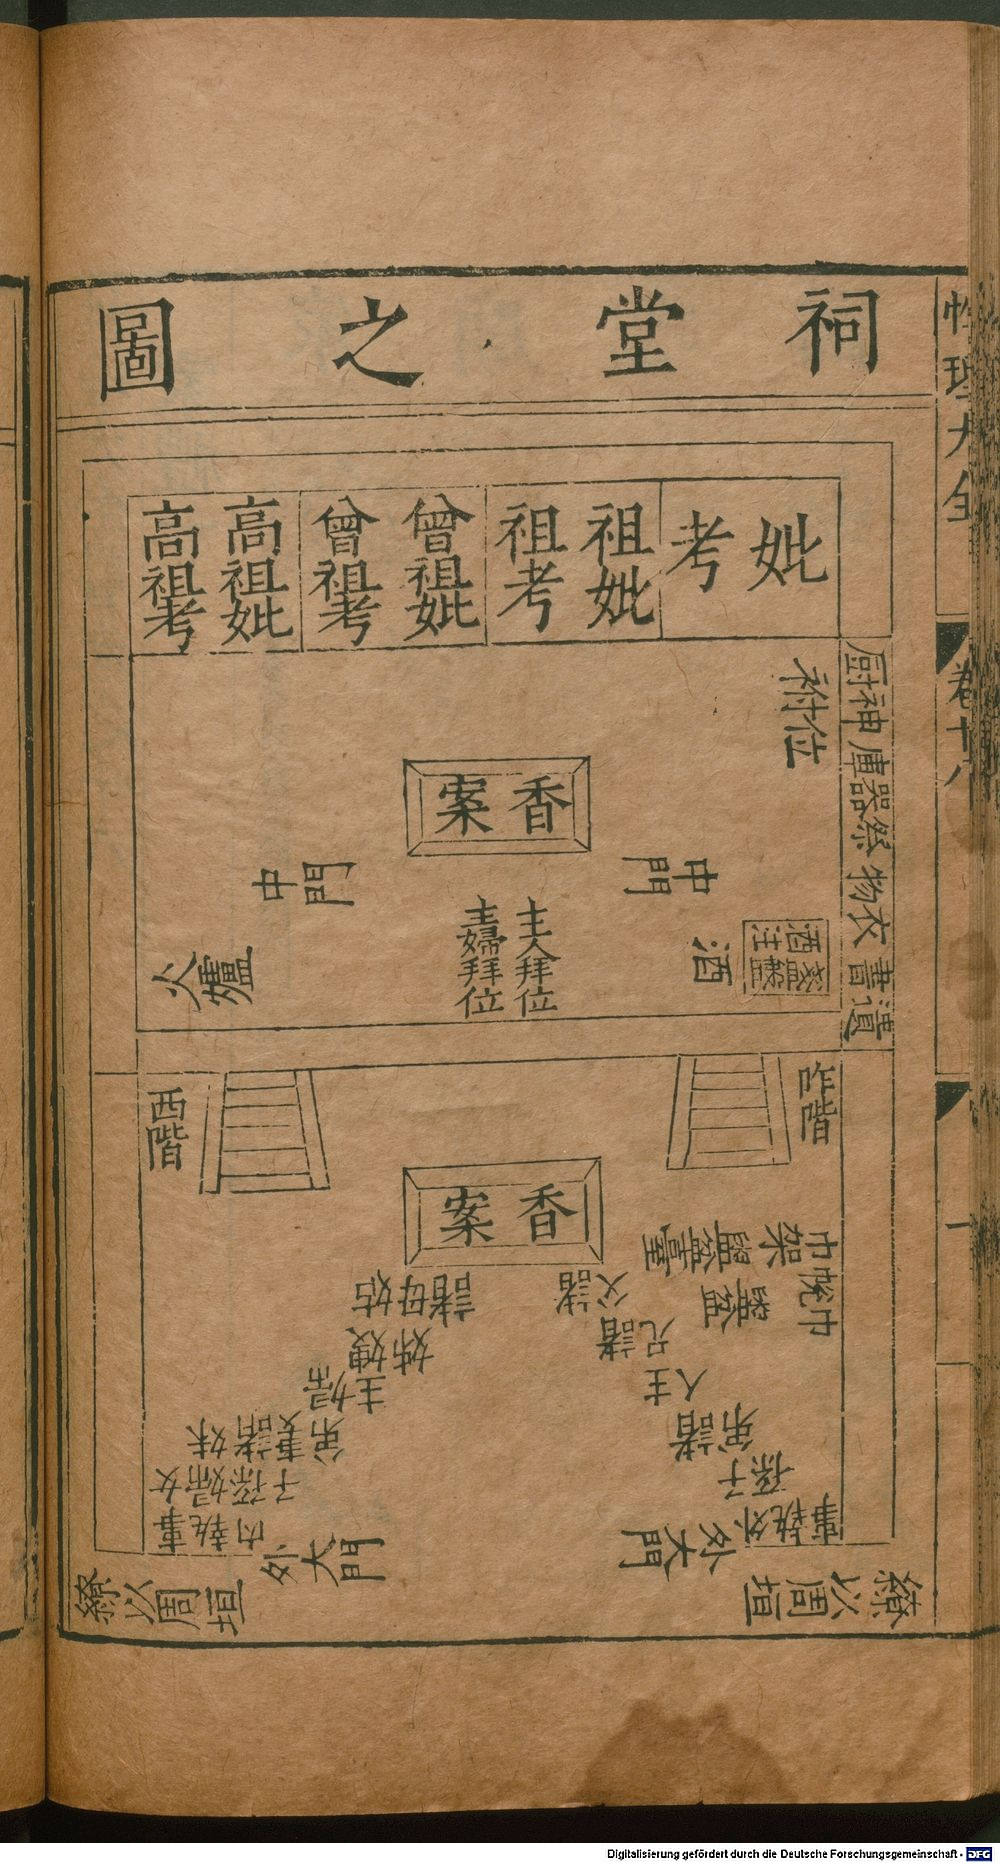 祠堂之圖
性理大全
卷十八
一
妣
考
祖妣
祖考
曾祖妣
曾祖考
高祖妣
高祖考
祔位
遺書衣物祭器庫神厨
香案
中門
中門
主人拜位
主婦拜位
酒
酒注
盞盤
火爐
阼階
西階
香案
巾架
盥盆臺
帨巾
盥盆
諸父
諸兄
主人
諸弟
子孫
外執事
諸母姑
嫂姊
主婦
弟妻諸妹
子孫婦女
內執事
外大門
外大門
繚以周垣
繚以周垣
Digitalisierung gefördert durch die Deutsche Forschungsgemeinschaft - DFG